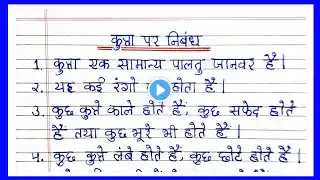 कुत्ता पर निबंध
1. कुत्ता एक सामान्य पालतु जानवर हैं।
2. यह कई रंगो होता हैं।
3. कुछ कुत्ते काले होते हैं, कुछ सफेद होते
हैं तथा कुछ भूरे भी होते हैं।
4. कुछ कुत्ते लंबे होते हैं, कुछ छोटे होते हैं